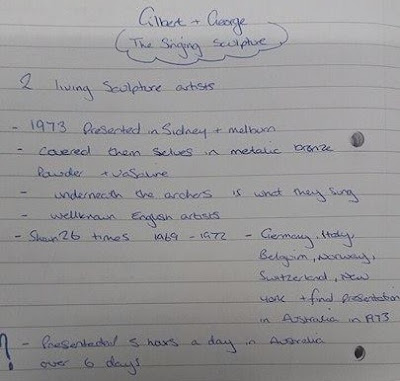 Gilbert + George
The Singing Sculpture
2 living Sculpture artists
- 1973 Presented in Sidney + melburn
- covered them selves in metalic bronze
Powder + vaSaline
- underneath the archers is what they sung
- wellknown English artists
- Shown 26 times 1969 - 1972 - Germany, Italy,
Belguim, Norway,
Switzerland, New
York + final presentation
in Australia in 1973
? - Presented 5 hours a day in Australia
over 6 days